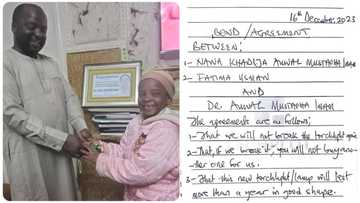 16th December, 2023
BOND / AGREEMENT
BETWEEN;
1- NANA KHADIJA AUWAL MUSTAPHA IMAM
2- FATIMA USMAN
AND
DR. AUWAL MUSTAPHA IMAM
The agreements are as follows;
1- That we will not break the torchlight again
2- That, if we break it, you will not buy ano-
ther one for us.
3- That this new torchlight/lamp will last
more than a year in good shape.